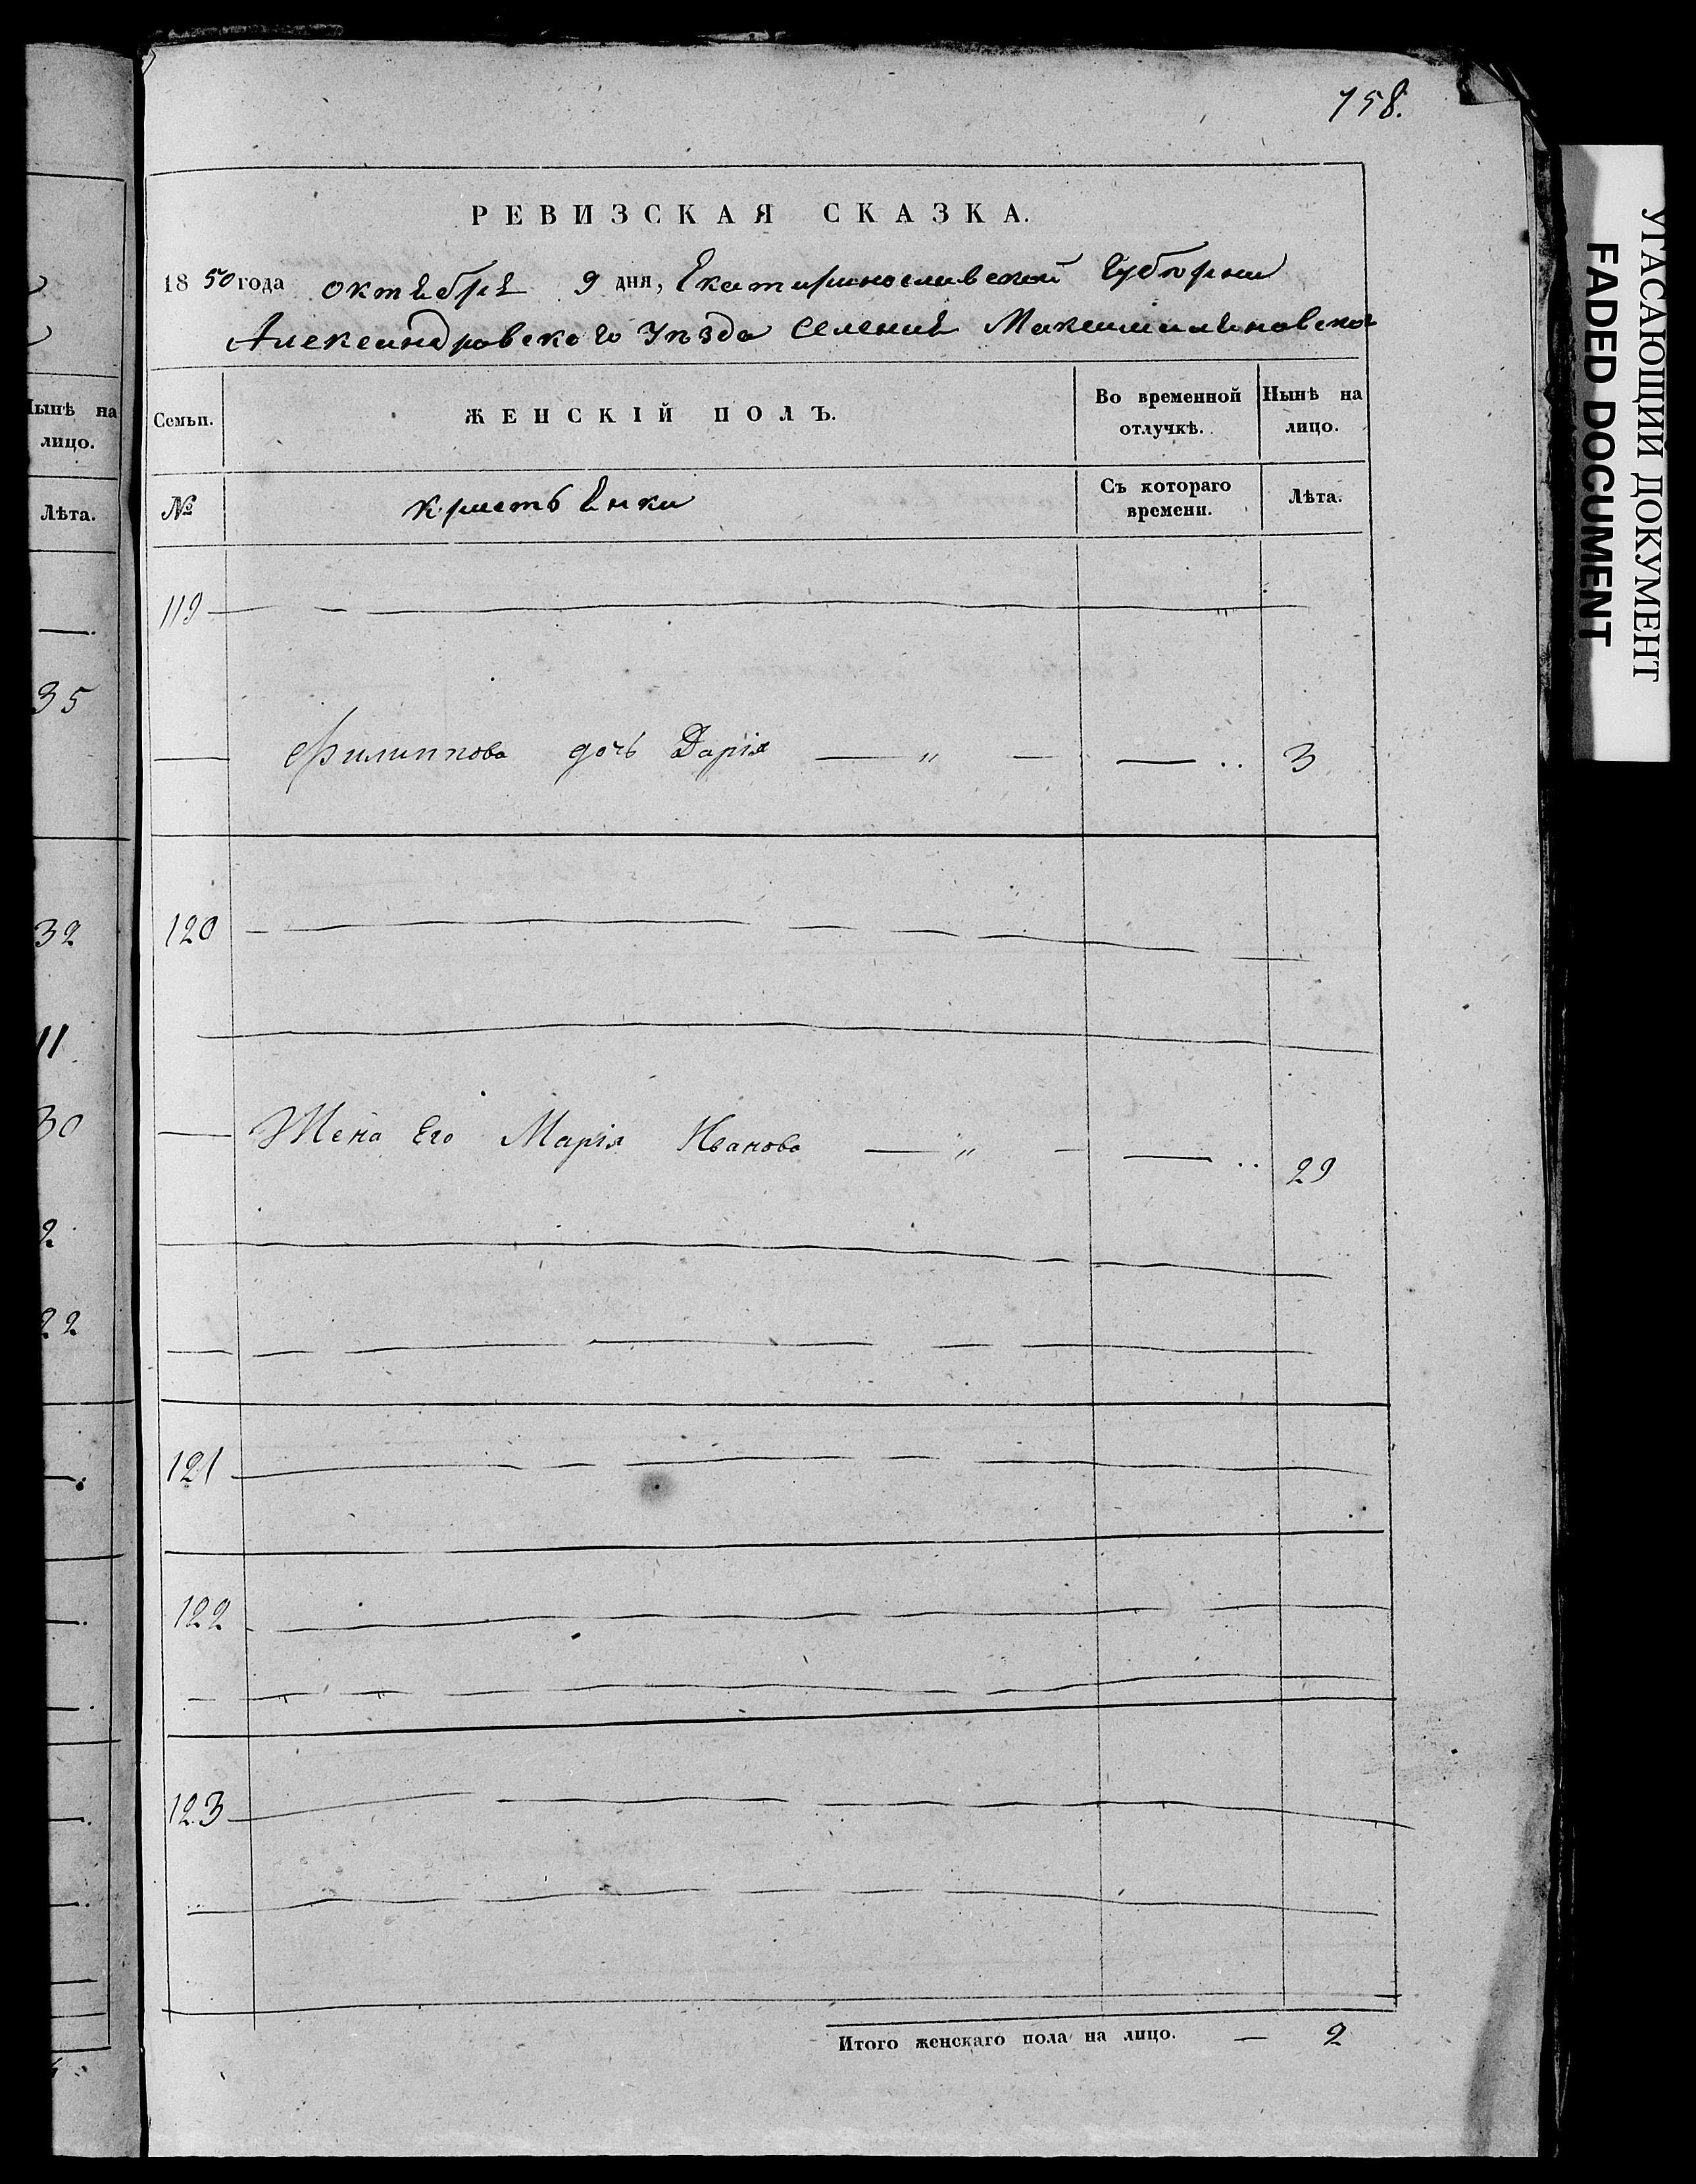 158.
РЕВИЗСКАЯ СКАЗКА.
1850 года октября 9 дня, Екатеринославской Губернии
Александровского Уѣзда Селения Максимиляновского
Семьи. ЖЕНСКІЙ ПОЛЪ. Во временной отлучкѣ. Нынѣ на лицо.
№ крестьянки Съ котораго времени. Лѣта.
119
Филиппова дочь Дарія — „ — — .. 3
120
Жена Его Марія Иванова — „ — — .. 29
121
122
123
Итого женскаго пола на лицо. — 2
Нынѣ на
лицо.
Лѣта.
35
32
11
30
2
22
УГАСАЮЩИЙ ДОКУМЕНТ
FADED DOCUMENT